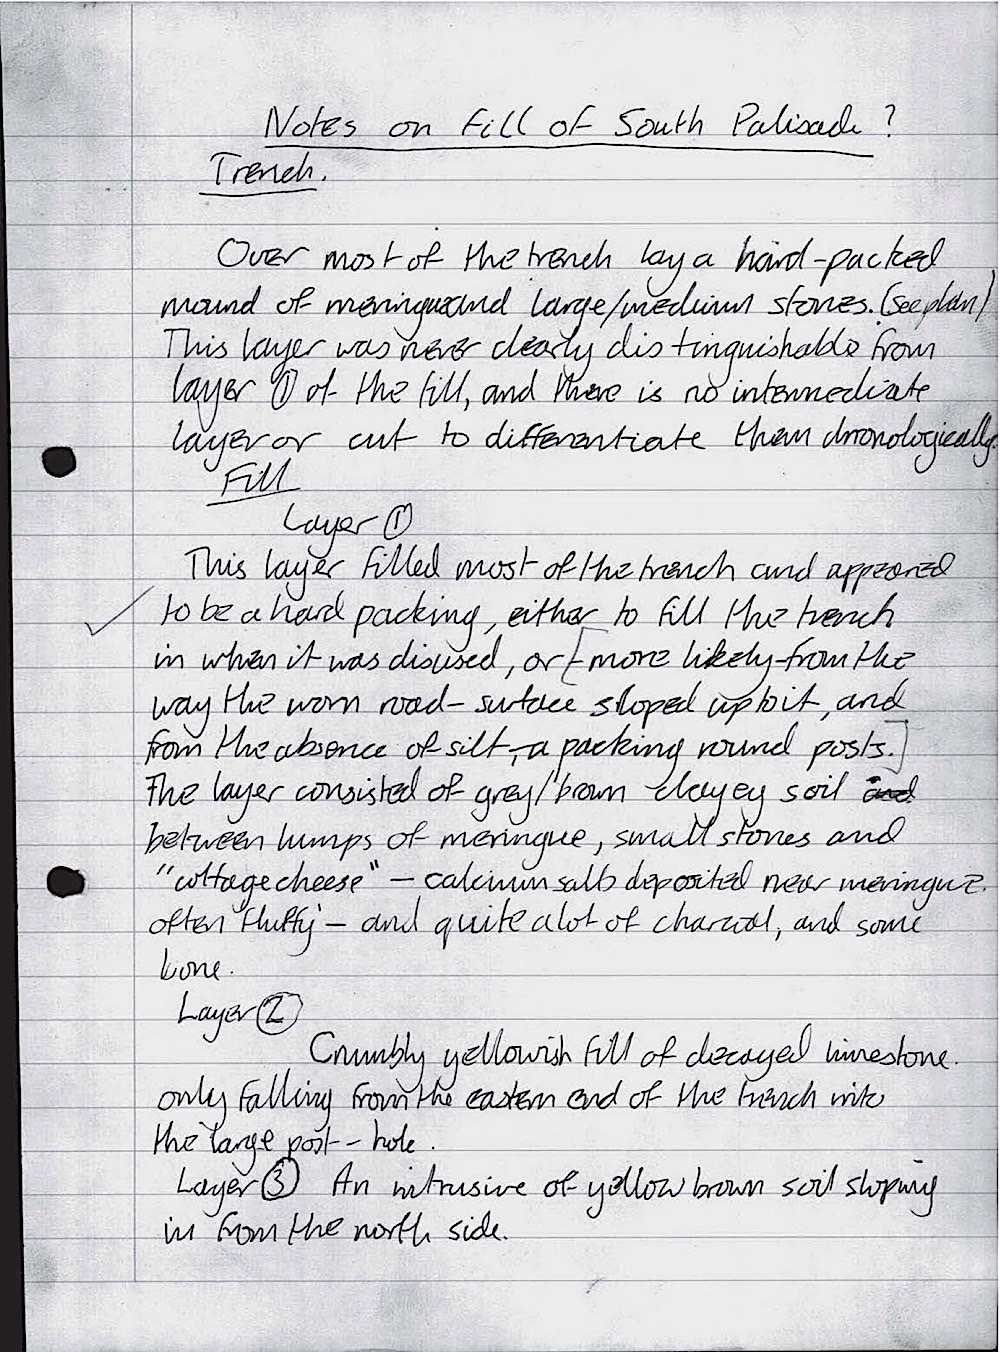 Notes on Fill of South Palisade?
Trench.
Over most of the trench lay a hard-packed
mound of meringue and large/medium stones. (See plan)
This layer was never clearly distinguishable from
layer ① of the fill, and there is no intermediate
layer or cut to differentiate them chronologically.
Fill
Layer ①
This layer filled most of the trench and appeared
to be a hard packing, either to fill the trench
in when it was disused, or [- more likely from the
way the worn road-surface sloped up to it, and
from the absence of silt, - a packing round posts.]
The layer consisted of grey/brown clayey soil and
between lumps of meringue, small stones and
"cottage cheese" - calcium salts deposited near meringue.
often 'fluffy' - and quite a lot of charcoal, and some
bone.
Layer ②
Crumbly yellowish fill of decayed limestone.
only falling from the eastern end of the trench into
the large post-hole.
Layer ③ An intrusive of yellow brown soil sloping
in from the north side.